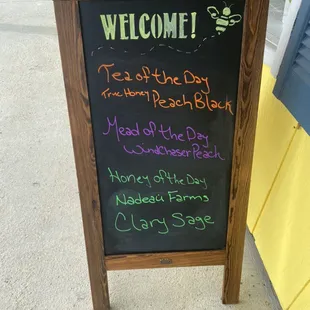 WELCOME!
Tea of the Day
True Honey Peach Black
Mead of the Day
WindChaser Peach
Honey of the Day
Nadeau Farms
Clary Sage